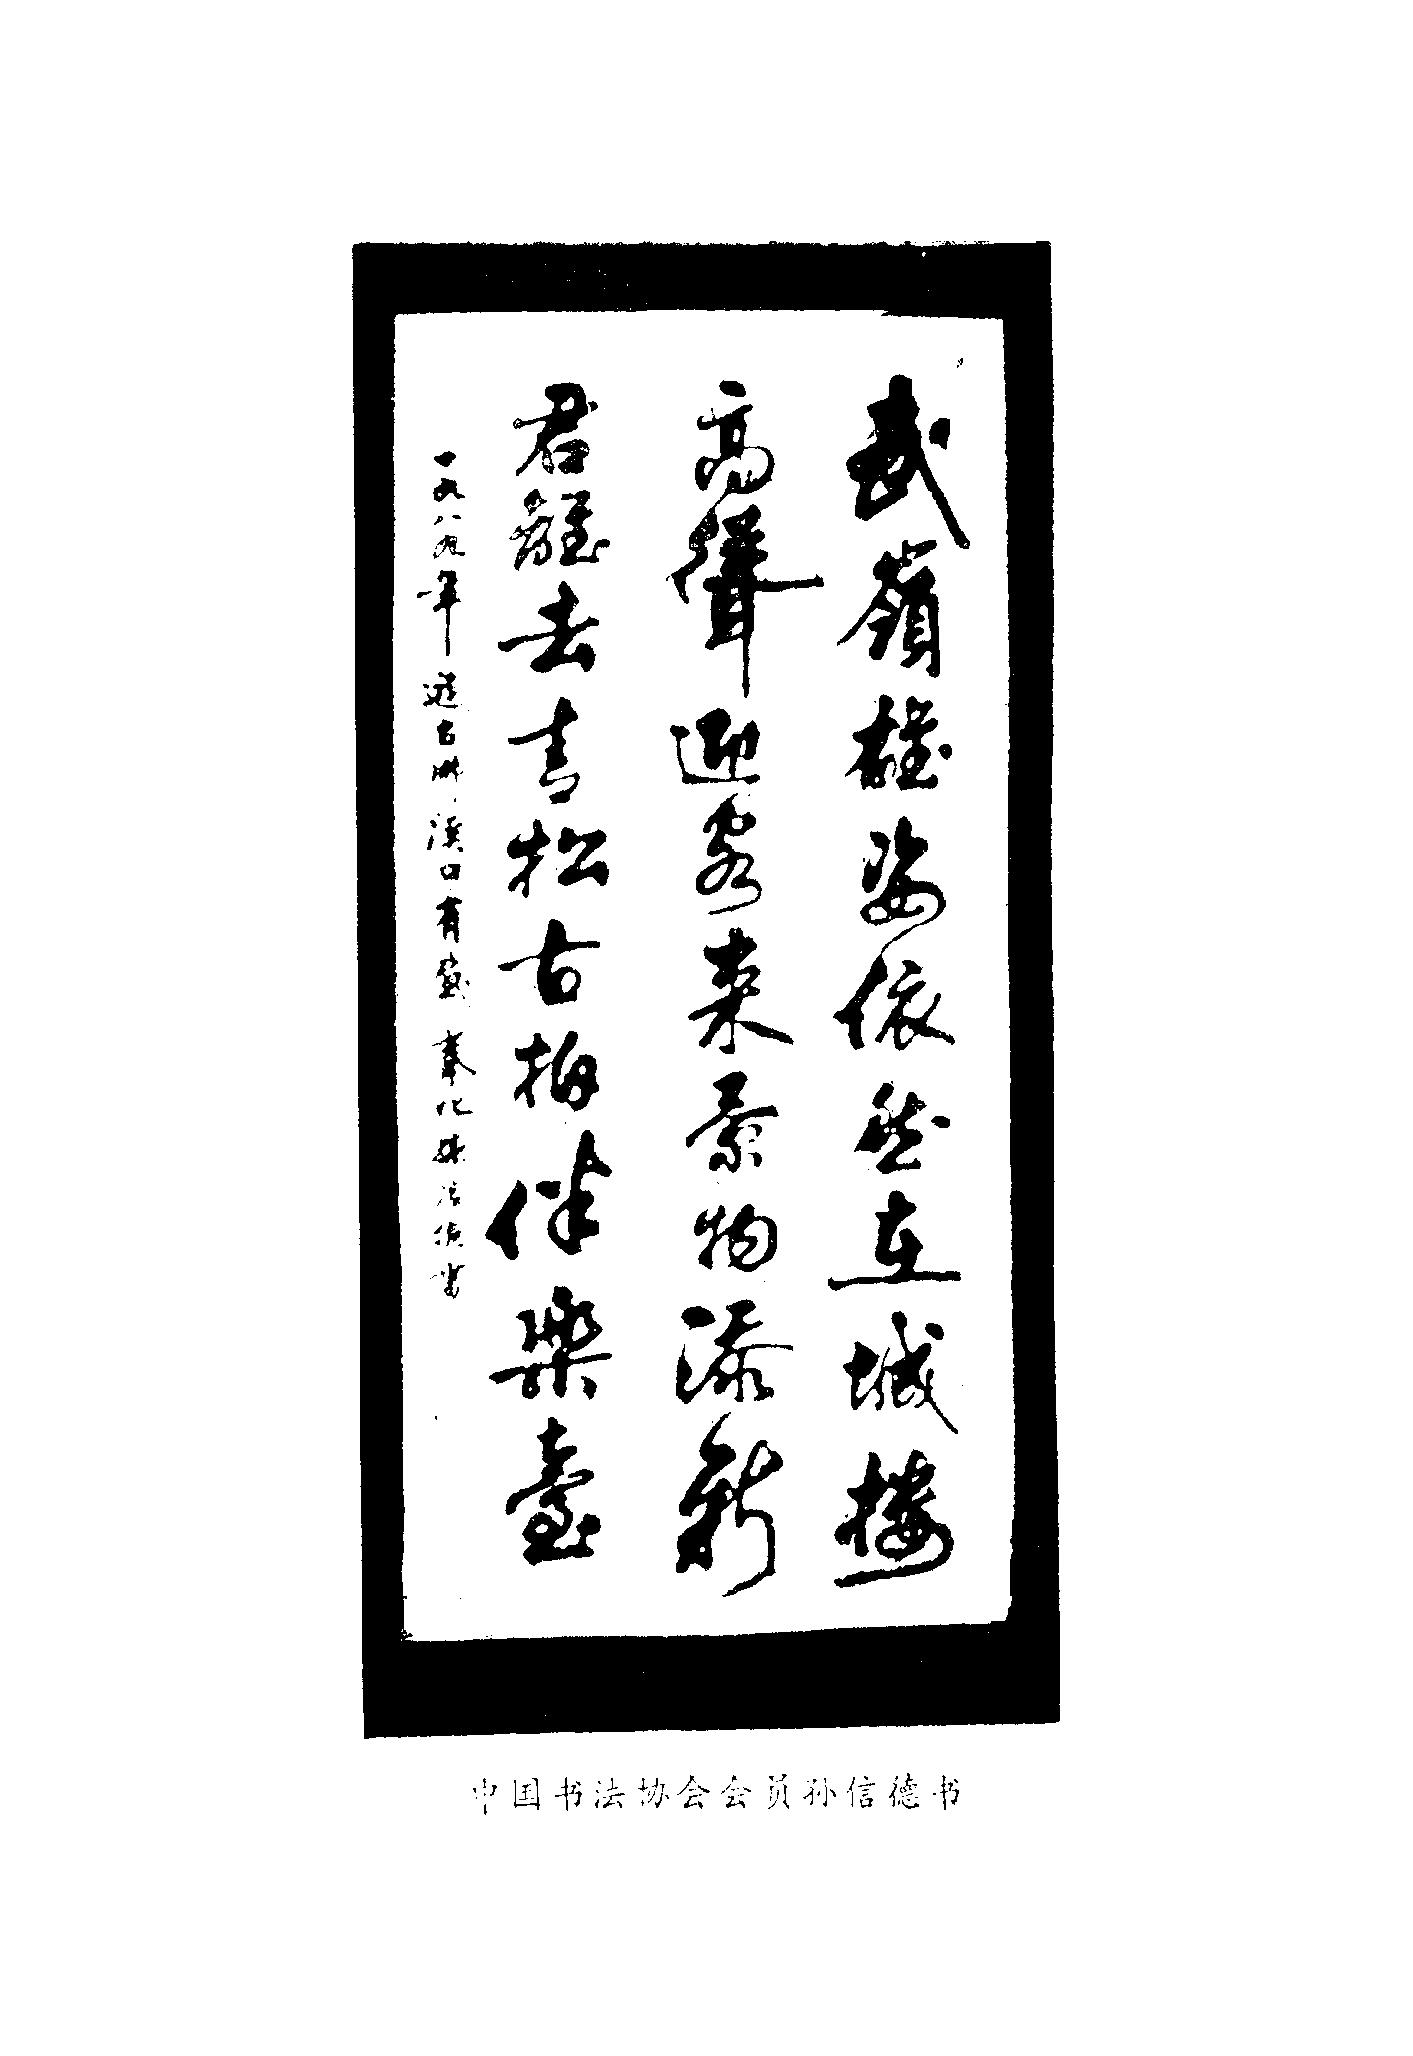 武嶺雄姿依然在城楼
高聳迎客来景物添新
君離去青松古柏伴樂臺
一九八九年遊故鄉溪口有感 奉化孫信德書
中国书法协会会员孙信德书